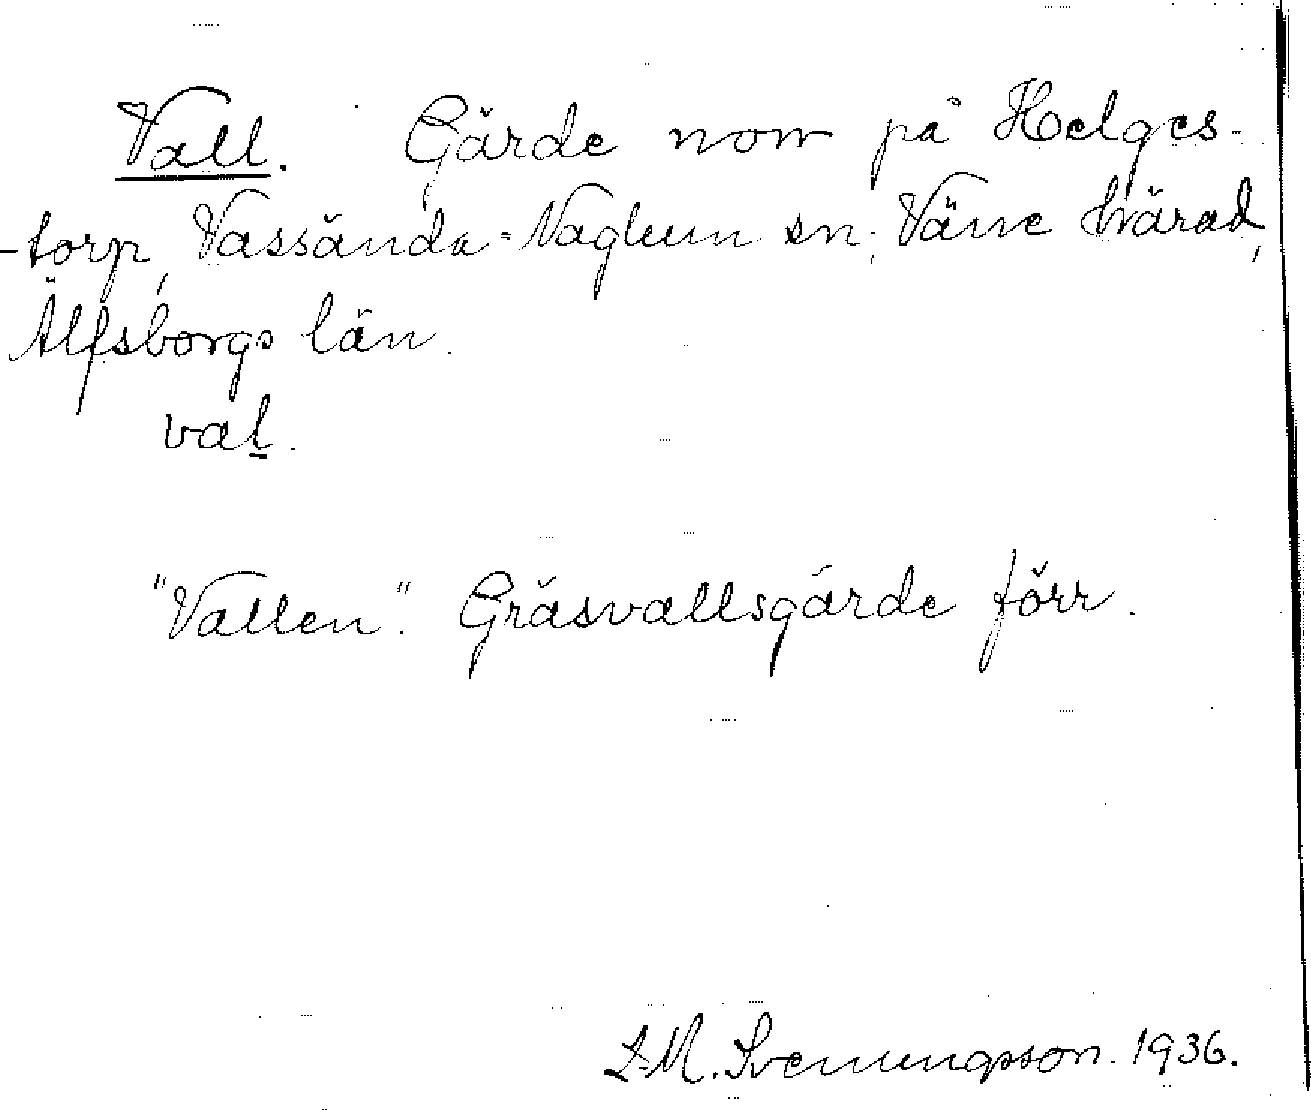 Vall. Gärde norr på Helges-
-torp, Vassända-Naglum sn; Väne härad,
Älfsborgs län.
val.
"Vallen". Gräsvallsgärde förr.
L-M. Svenungsson. 1936.